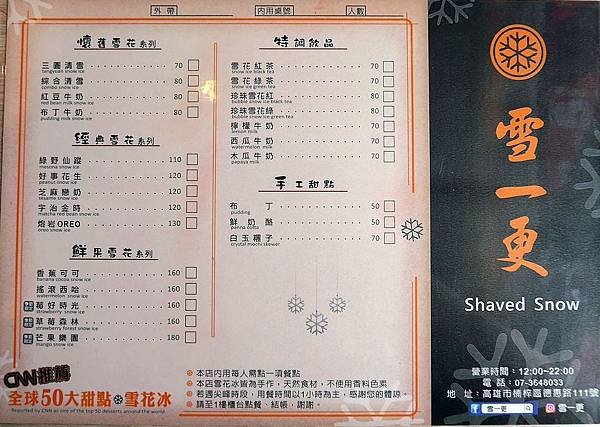 外帶 內用桌號 人數
懷舊雪花系列
三圓清雪 70
tangyuan snow ice
綜合清雪 80
combo snow ice
紅豆牛奶 80
red bean milk snow ice
布丁牛奶 80
pudding milk snow ice
經典雪花系列
綠野仙蹤 110
好事花生 120
peanut snow ice
芝麻戀奶 120
sesame snow ice
宇治金時 120
matcha red bean snow ice
熔岩OREO 130
oreo snow ice
鮮果雪花系列
香蕉可可 160
banana cocoa snow ice
搖滾西哈 160
watermelon snow ice
莓好時光 160
strawberry snow ice
草莓森林 180
strawberry forest snow ice
芒果樂園 180
mango snow ice
CNN推薦
全球50大甜點 雪花冰
Reported by CNN as one of the top 50 desserts around the world
特調飲品
雪花紅茶 70
snow ice black tea
雪花綠茶 70
snow ice green tea
珍珠雪花紅 80
bubble snow ice black tea
珍珠雪花綠 80
bubble snow ice green tea
檸檬牛奶 70
lemon milk
西瓜牛奶 70
watermelon milk
木瓜牛奶 70
papaya milk
手工甜點
布丁 50
pudding
鮮奶酪 50
panna cotta
白玉糰子 70
crystal mochi skewer
本店內用每人需點一項餐點
本店雪花冰皆為手作,天然食材,不使用香料色素
若遇尖峰時段,用餐時間以1小時為主,感謝您的體諒。
請至1樓櫃台點餐、結帳,謝謝。
雪一更
Shaved Snow
營業時間:12:00~22:00
電話:07-3648033
地址:高雄市楠梓區德惠路111號
雪一更 雪一更